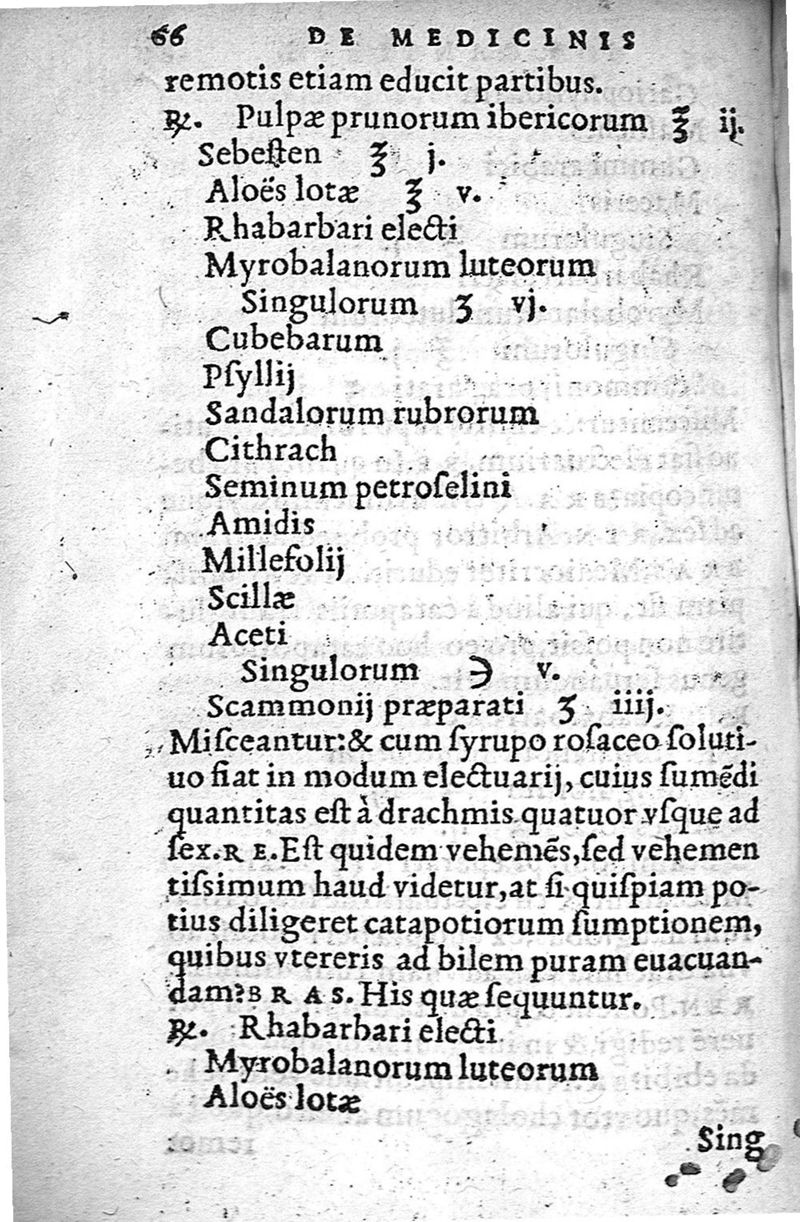 66 DE MEDICINIS
remotis etiam educit partibus.
℞. Pulpæ prunorum ibericorum ℥ ij.
Sebeſten ℥ j.
Aloës lotæ ℥ v.
Rhabarbari electi
Myrobalanorum luteorum
Singulorum ʒ vj.
Cubebarum
Pſyllij
Sandalorum rubrorum
Cithrach
Seminum petroſelini
Amidis
Millefolij
Scillæ
Aceti
Singulorum ℈ v.
Scammonij præparati ʒ iiij.
Miſceantur:& cum ſyrupo roſaceo ſoluti-
uo fiat in modum electuarij, cuius ſumẽdi
quantitas eſt à drachmis quatuor vſque ad
ſex. R E. Eſt quidem vehemẽs, ſed vehemen
tiſsimum haud videtur, at ſi quiſpiam po-
tius diligeret catapotiorum ſumptionem,
quibus vtereris ad bilem puram euacuan-
dam? B R A S. His quæ ſequuntur.
℞. Rhabarbari electi
Myrobalanorum luteorum
Aloës lotæ
Sing